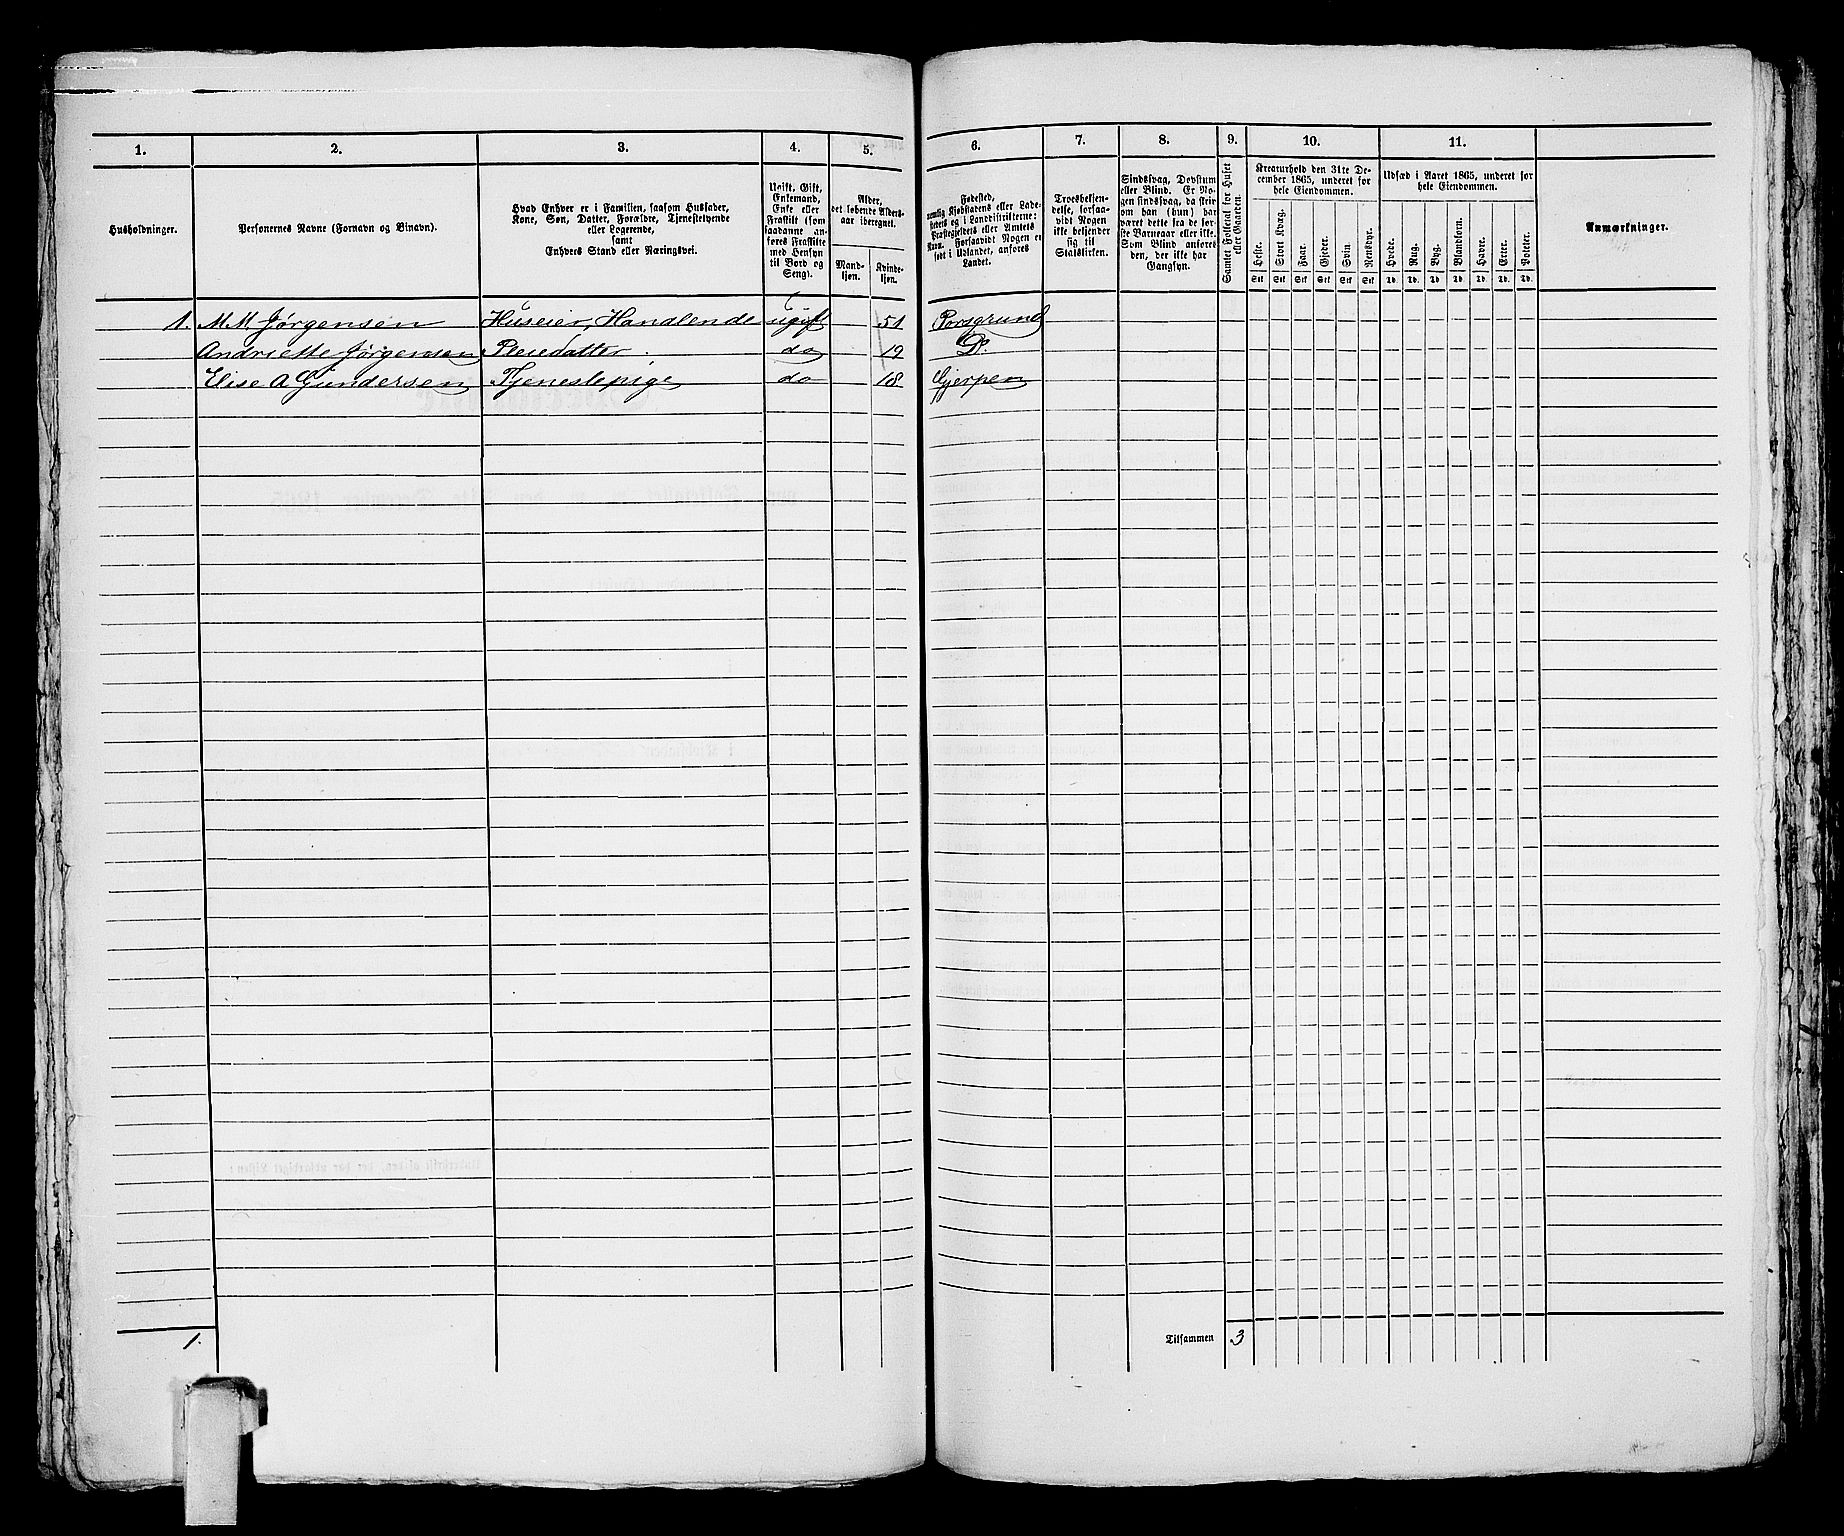 1. 2. 3. 4. 5. 6. 7. 8. 9. 10. 11.
Husholdninger.
Personernes Navne (Fornavn og Binavn).
Hvad Enhver er i Familien, saasom Husfader,
Kone, Søn, Datter, Forældre, Tjenestetyende
eller Logerende,
samt
Enhvers Stand eller Næringsvei.
Ugift, Gift,
Enkemand,
Enke eller
Fraskilt (som
saadanne an-
føres Fraskilte
med Hensyn
til Bord og
Seng).
Alder,
det løbende Alders-
aar iberegnet.
Mand-
kjøn.
Kvinde-
kjøn.
Fødested,
nemlig Kjøbstadens eller Lade-
stedets og i Landdistrikterne:
Præstegjeldets eller Amtets
Navn. Forsaavidt Nogen er
født i Udlandet, anføres
Landet.
Troesbekjen-
delse, forsaa-
vidt Nogen
ikke bekjender
sig til
Statskirken.
Sindssvag, Døvstum
eller Blind. Er No-
gen sindssvag, da skri-
ves om han (hun) har
været dette fra de før-
ste Barneaar eller ikke.
Som Blind anføres
den, der ikke har
Gangsyn.
Samlet Folketal for Huset
eller Gaarden.
Kreaturhold den 31te De-
cember 1865, underet for
hele Eiendommen.
Heste. Stort Kvæg. Faar. Gjeder. Svin. Rensdyr.
Stk Stk Stk Stk Stk Stk
Udsæd i Aaret 1865, underet for
hele Eiendommen.
Hvede. Rug. Byg. Blandkorn. Havre. Erter. Poteter.
Td. Td. Td. Td. Td. Td. Td.
Anmærkninger.
1. M. M. Jørgensen Huseier, Handlende ugift 51 Porsgrund
Andriette Jørgensen Pleiedatter. do 19 Do.
Elise A Gundersen Tjenestepige do 18 Gjerpen
1. Tilsammen 3